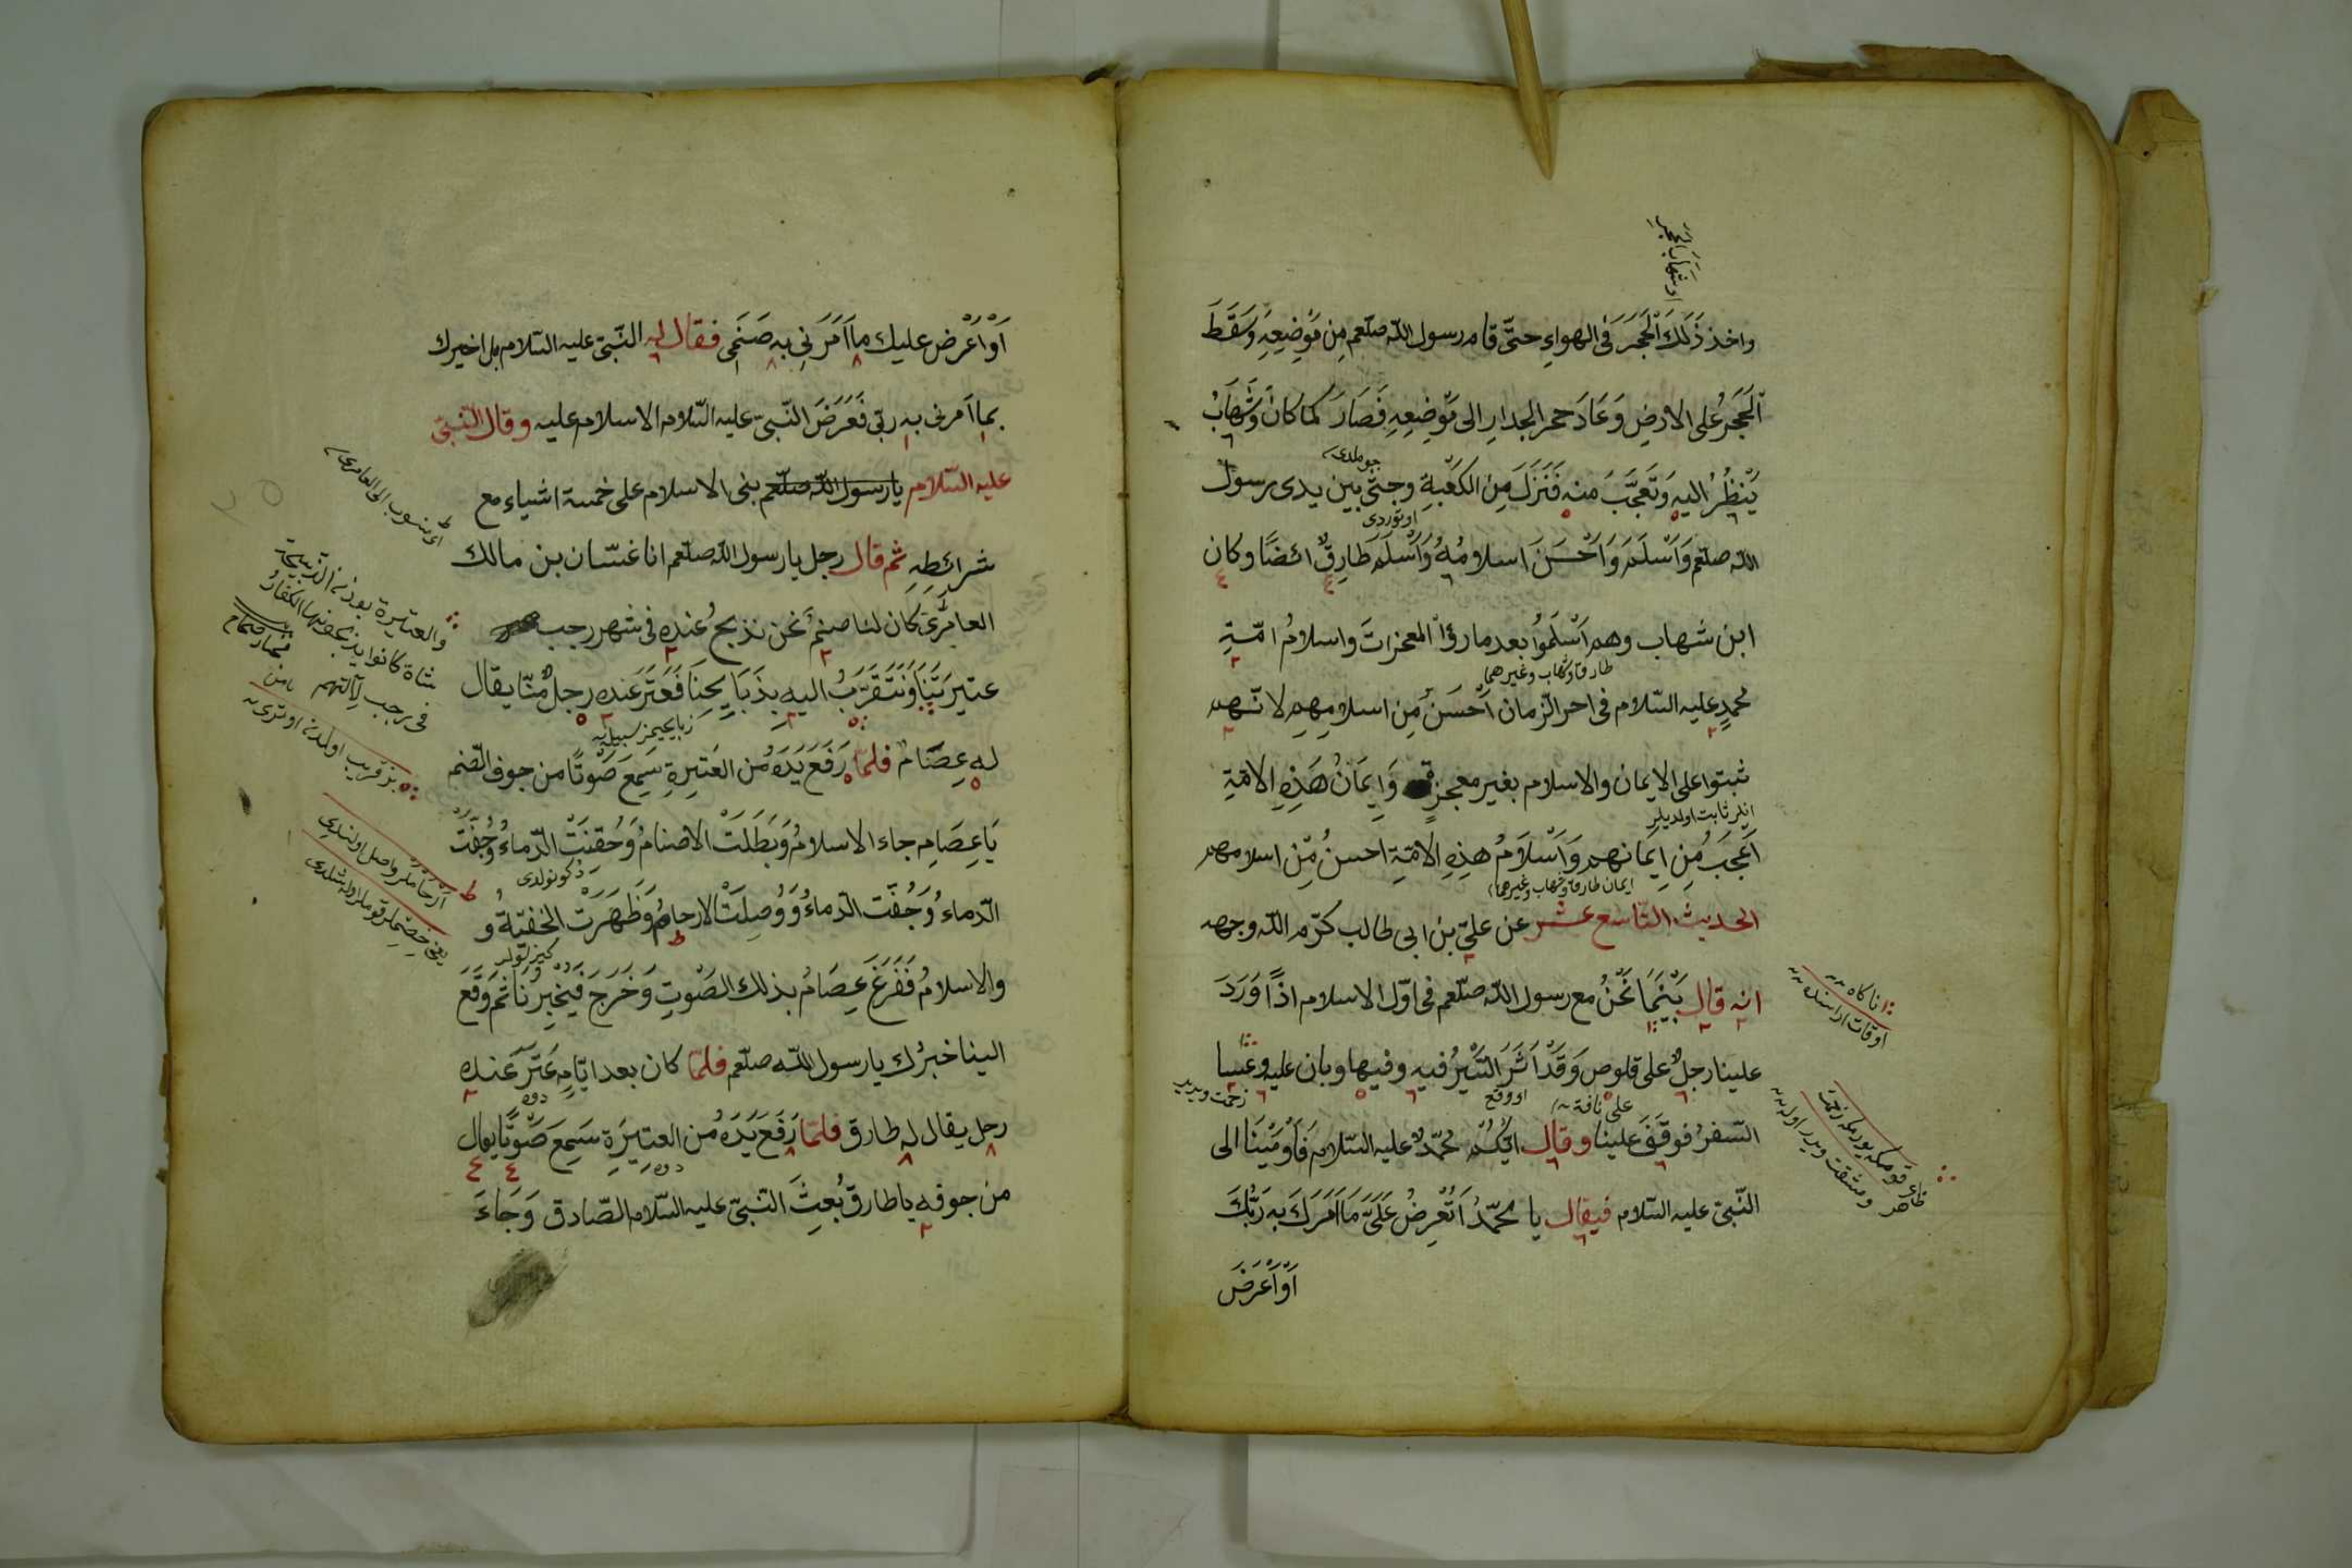 واخذ ذَلَكَ اَلْحَجَرَ فى الهواءِ حتّى قام رسول اللّه صلّعم مِن مَوْضِيعِهِ وَسَقَطَ
اَلْحَجَرُ على الارضِ وَعَادَ حجر الجدارِ الى مَوْضِيعِهِ فَصَارَ كما كانَ وَشَهَابُ
يَنْظُرُ اليهِ وَتَعَجَّبَ منه فَنَزَلَ مِنَ الكَعْبَةِ وجثى بين يدى رسول
اللّه صلّعم وَاَسْلَمَ وَاَحْسَنَ اسلامُهُ وَاَسْلَمَ طَارِقٌ ائضًا وكان
ابن شهاب وهم اَسْلَمُوا بعد ما رؤاْ المعجزاتَ واسلامُ امّةِ
طارق وشهاب وغيرهما
محمدٍ عليه السّلام فى اخر الزّمان اَحْسَنُ مِن اسلامِهِم لانّهم
ثبتوا على الايمان والاسلام بغير معجزة وَاِيمَانُ هَذِهِ الامّةِ
انلر ثابت اولديلر
اَعْجَبُ مِن اِيمَانهم وَاَسْلَامُ هذِهِ الامّةِ احسنُ مِّن اسلامهم
ايمان طارق وشهاب وغيرهما
الحديث التاسع عشر عن علىّ بن ابى طالب كرّم اللّه وجهه
انه قال بَيْنَمَا نَحْنُ مع رسول اللّه صلّعم فى اوّل الاسلام اذًا وَرَدَ
علينا رجلٌ على قلوص وَقَدْ اَثَرَ السَّيْرُ فيه وفيها وبان عليه وعثيا
على ناقة
السّفرُ فوقَفَ علينا وقال ايّكم محمّدٌ عليه السّلام فَاَوْمَيْنَا الى
النّبىّ عليه السّلام فيقال يا محمّدُ اَتُعْرِضُ عَلَىَّ مَا اَمَرَكَ بِهِ رَبُّكَ
اَوْ اَعْرَضَ
اَوْ اَعْرَض عليك ما اَمَرَنى به صَنَمى فقال له النّبىّ عليه السّلام بل اخبرك
بما اَمرنى به ربّى فَعَرَضَ النّبىّ عليه السّلام الاسلام عليه وقال النّبىّ
عليه السّلام يا رسول اللّه صلّعم بنى الاسلام على خمسة اشياء مع
شرائطِهِ ثم قال رجل يا رسول اللّه صلّعم انا غسّان بن مالك
العامِرىّ كَان لنا صنمٌ نحن نذبحُ عنده فى شهر رجب
عتيرَتَنَا وَنَتَقَرَّبُ اليهِ بِذَبَايِحِنَا فَعَتَرَ عَنده رجلٌ مّنّا يقال
له عِصَامٌ فلمّا رَفَعَ يَدَهُ مِن العَتِيرةِ سَمِعَ صَوْتًا من جوف الصّنم
يَا عِصَامِ جاء الاسلامُ وَبَطَلَتْ الاصنامُ وَحُقنَتْ الدّماءُ وَجُفّتْ
الدّماءُ وَجُفّت الدّماءُ وَوُصِلَتْ الارحامُ وَظَهَرَت الحَفيّةُ و
والاسلامُ فَفَزِعَ عِصَامُ بذلك الصَوْتِ وَخَرَجَ فيخبِرُنَا ثم وَقَعَ
الينا خبرُك يا رسول اللّه صلّعم فلمّا كان بعد ايّامٍ عَتَرَ عَنده
رجل يقال له طارق فلمّا رَفَع يَدَهُ مِن العتِيرَةِ سَمِعَ صَوْتًا يقال
من جوفه يا طارق بُعِثَ النّبىّ عليه السّلام الصّادق وَجَاءَ
اى منسوب الى العامرى
شاة كانوا يذبحونها الكفار
فى رجب لآلهتهم
ارحاملر واصل اولندى